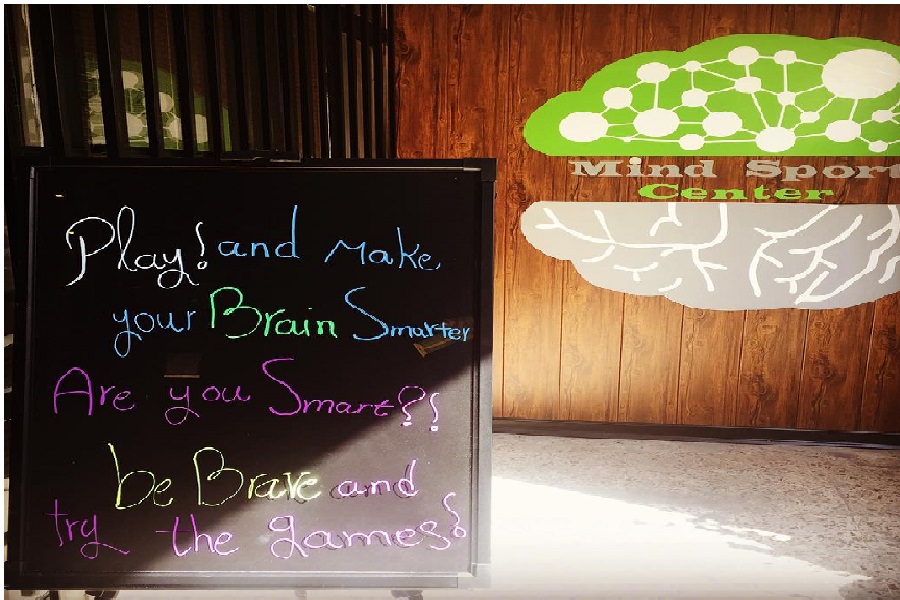 Play! and Make
your Brain Smarter
Are you Smart?!
be Brave and
try the games!
Mind Sport
Center